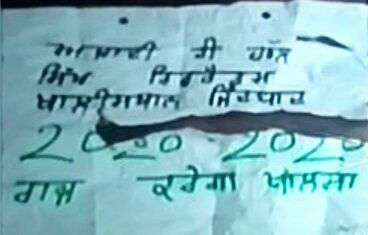 ਅਜਾਦੀ ਦੀ ਹੱਲ
ਸਿੱਖ ਰਿਫਰੈਂਡਮ
ਖਾਲੀਸਥਾਨ ਜਿੰਦਾਬਾਦ
2020 2020
ਰਾਜ ਕਰੇਗਾ ਖਾਲਸਾ